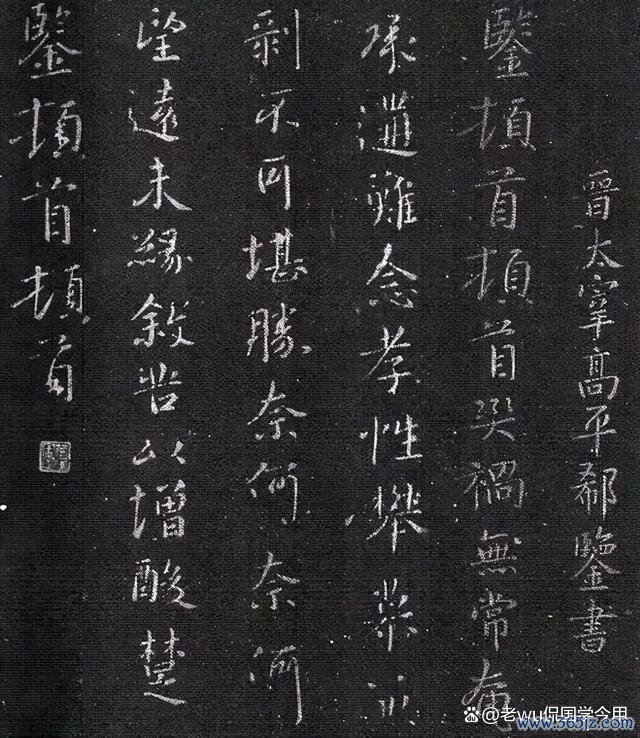 晉太宰高平郗鑒書
鑒頓首頓首災禍無常奄
承遘難念孝性攀慕兼
剝不可堪勝奈何奈何
望遠未緣敘苦以增酸楚
鑒頓首頓首
@老wu侃国学今用
www.365jz.com